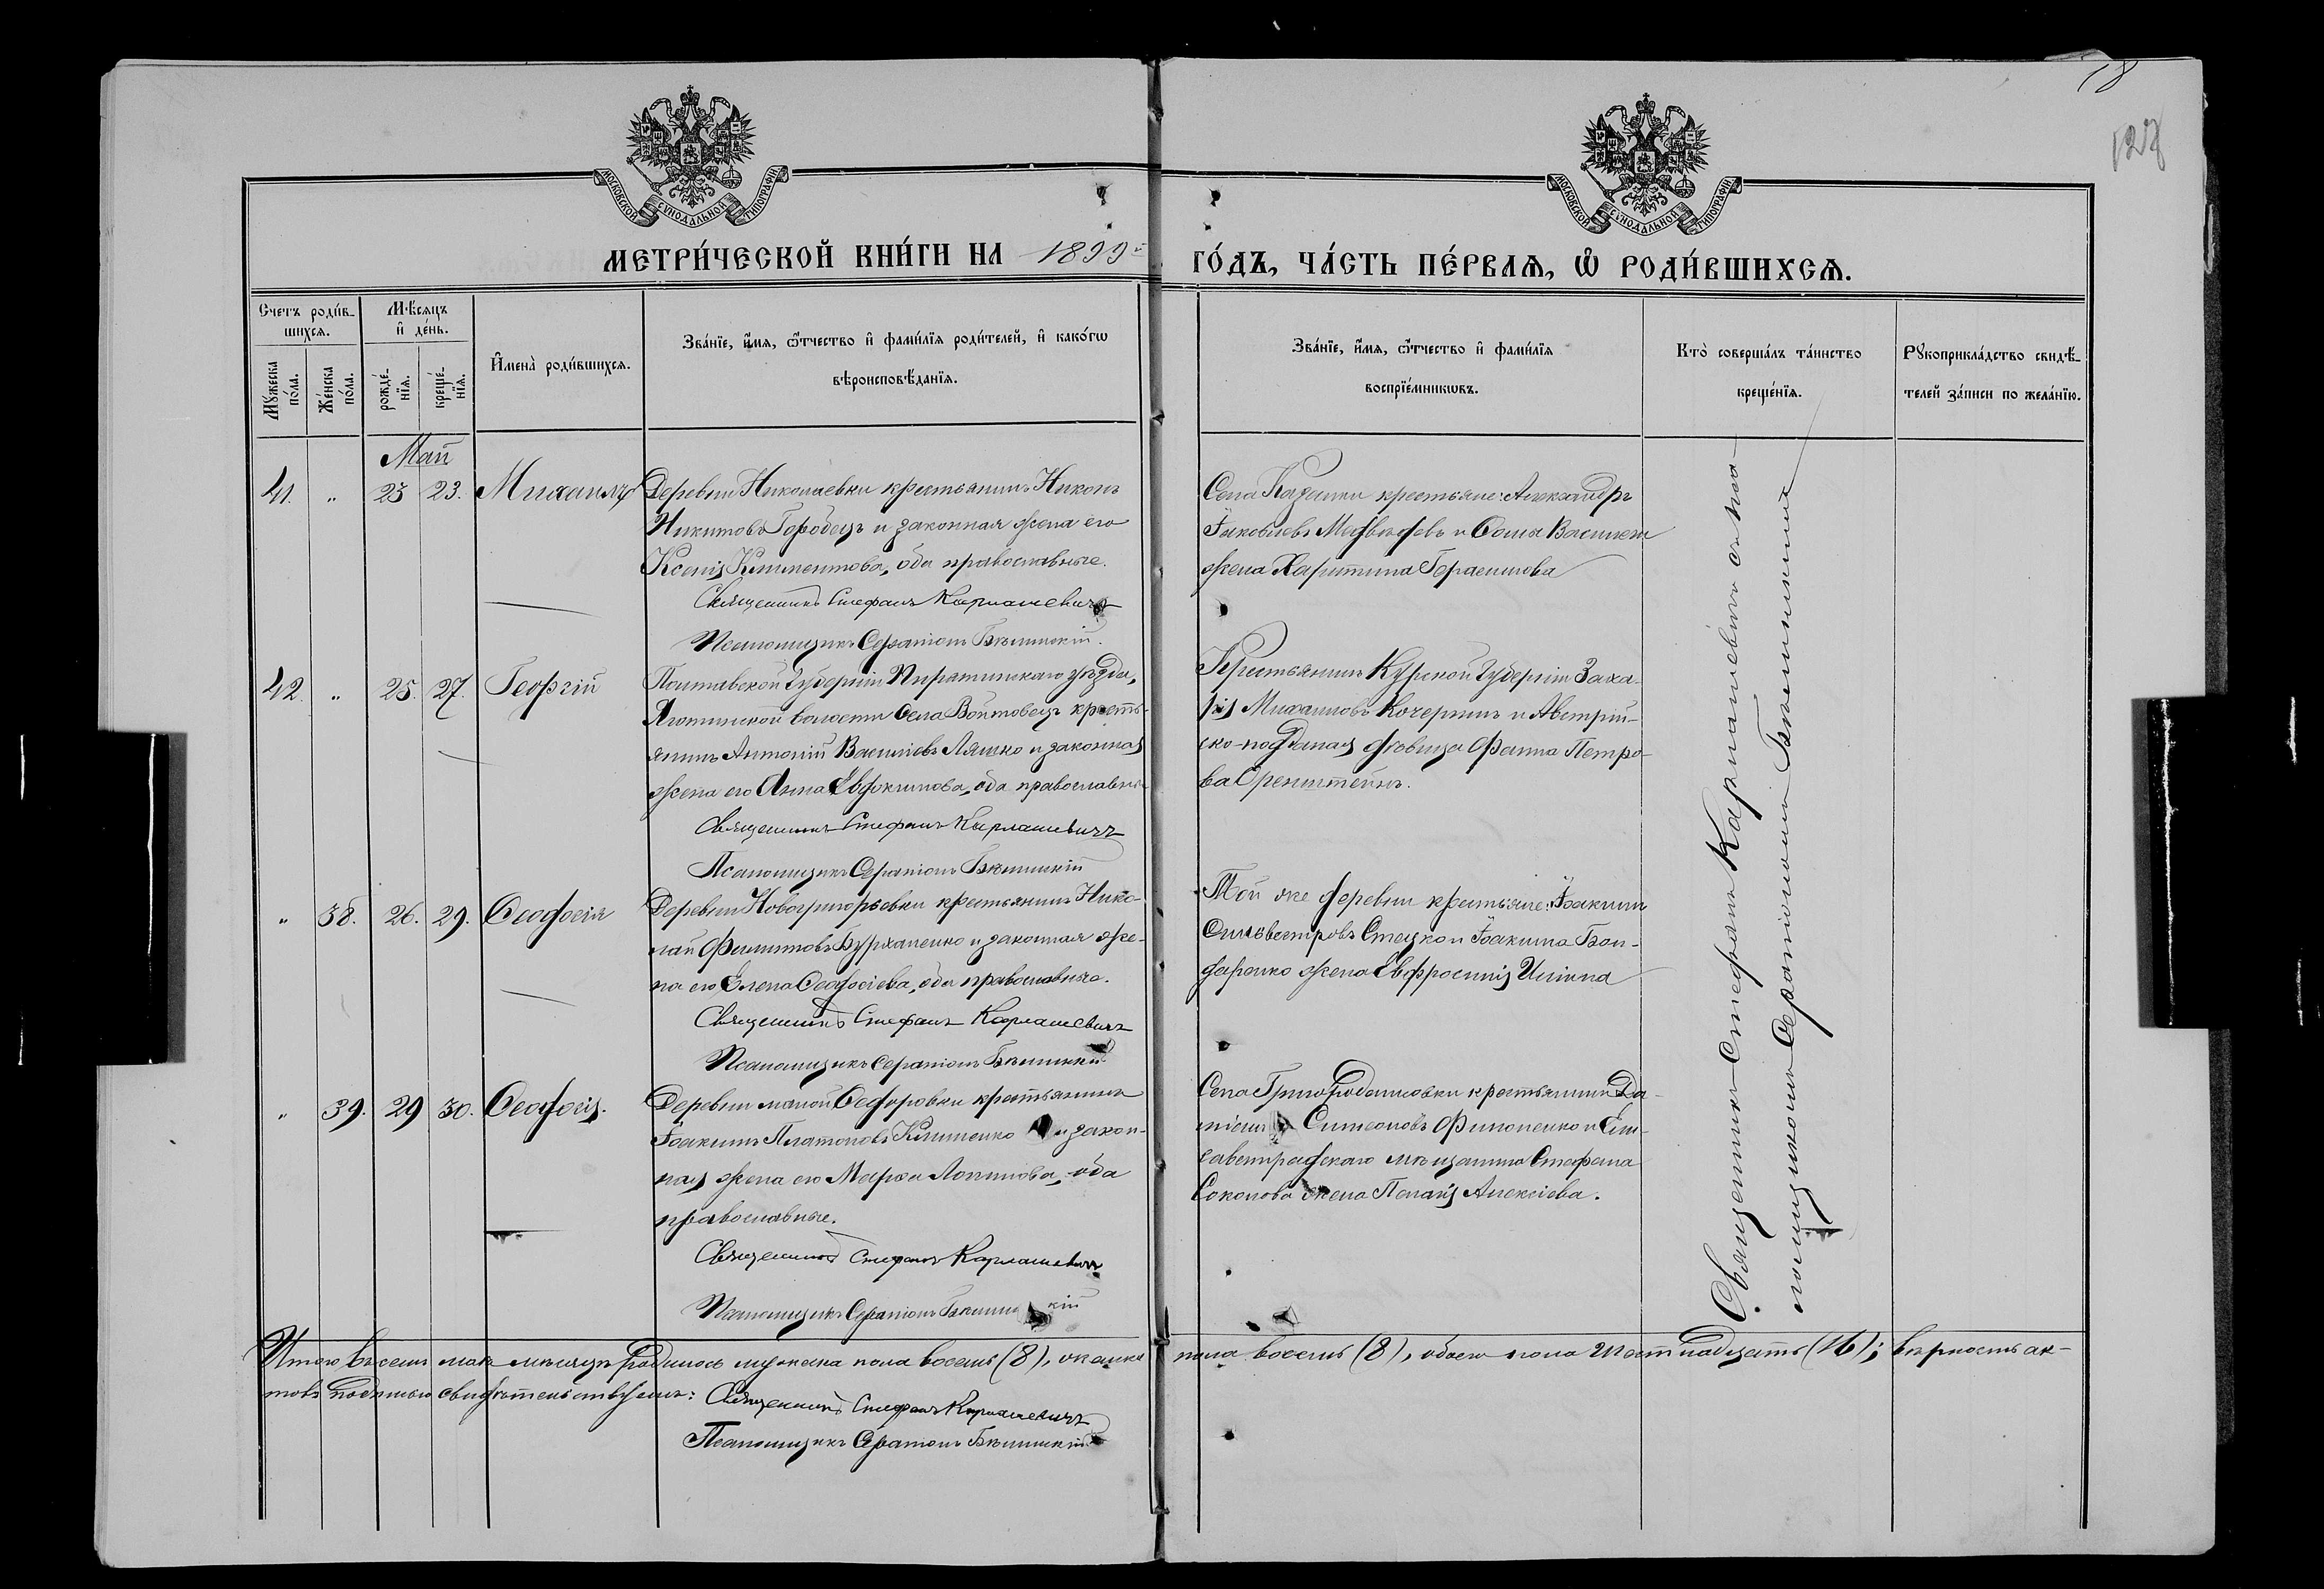 18
127
МОСКОВСКОЙ СѴНОДАЛЬНОЙ ТИПОГРАФІИ
МОСКОВСКОЙ СѴНОДАЛЬНОЙ ТИПОГРАФІИ
МЕТРИ́ЧЕСКОЙ КНИ́ГИ НА 1899й ГО́ДЪ, ЧА́СТЬ ПЕ́РВАѦ, Ѽ РОДИ́ВШИХСѦ.
Счетъ роди́в-
шихсѧ.
Мѣ́сѧцъ
и҆ де́нь.
Мꙋ́жеска по́ла.
Же́нска по́ла.
рожде́-нїѧ.
креще́-нїѧ.
И҆мена̀ роди́вшихсѧ.
Зва́нїе, и҆́мѧ, ѻ҆́тчество и҆ фами́лїѧ роди́телей, и҆ како́гѡ
вѣроисповѣ́данїѧ.
Зва́нїе, и҆́мѧ, ѻ҆́тчество и҆ фами́лїѧ
воспрїе́мникѡвъ.
Кто̀ соверша́лъ та́инство
креще́нїѧ.
Рꙋкоприкла́дство свидѣ́-
телей за́писи по жела́нїю.
Май
41. „ 23 23. Михаилъ
Деревни Николаевки крестьянинъ Никонъ
Никитовъ Городецъ и законная жена его
Ксенія Климентова, оба православные.
Священникъ Стефанъ Карпашевичъ
Псаломщикъ Серапіонъ Бѣлинскій.
Села Казанки крестьяне: Александръ
Іаковлевъ Медвѣдевъ и Сомы
жена Харитина Герасимова
42. „ 25. 27. Георгій
Полтавской губерніи Пирятинскаго уѣзда,
Яготинской волости села Войтовецъ кресть-
янинъ Антоній Василіевъ Ляшко и законная
жена его Анна Евдокимова, оба православные
Священникъ Стефанъ Карпашевичъ
Псаломщикъ Серапіонъ Бѣлинскій
Крестьянинъ Курской губерніи Заха-
рія Михаиловъ Кочергинъ и Австрій-
ско-подданая дѣвица Фанна Петро-
ва Оренштейнъ.
„ 38. 26. 29. Ѳеодосія
Деревни Новогригорьевки крестьянинъ Нико-
лай Филипповъ Бурханенко и законная же-
на его Елена Ѳеодосіева, оба православные.
Священникъ Стефанъ Карпашевичъ
Псаломщикъ Серапіонъ Бѣлинскій
Той же деревни крестьяне: Іоакимъ
Сильвестровъ Стецко и Іоакима Бон-
даренко жена Евфросинія Иліина
„ 39. 29 30. Ѳеодосія.
Деревни малой Ѳедоровки крестьянинъ
Іоакимъ Платоновъ Клименко и закон-
ная жена его Марѳа Логинова, оба
православные.
Священникъ Стефанъ Карпашевичъ
Псаломщикъ Серапіонъ Бѣлинскій
Села крестьянинъ Да-
ніилъ Симеоновъ Филоненко и Ели-
саветградскаго мѣщанина Стефана
Соколова жена Пелагія Алексіева.
Священникъ Стефанъ Карпашевичъ съ пса-
ломщикомъ Серапіономъ Бѣлинскимъ
Итого въ семъ маѣ мѣсяцѣ родилось мужеска пола восемь (8), женска пола восемь (8), обоего пола шестнадцать (16); вѣрность ак-
товъ подписью свидѣтельствуемъ: Священникъ Стефанъ Карпашевичъ
Псаломщикъ Серапіонъ Бѣлинскій